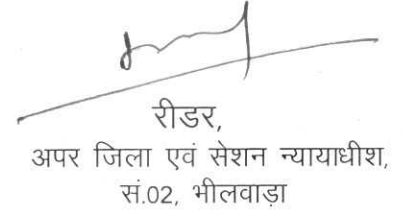 रीडर,
अपर जिला एवं सेशन न्यायाधीश,
सं.02, भीलवाड़ा